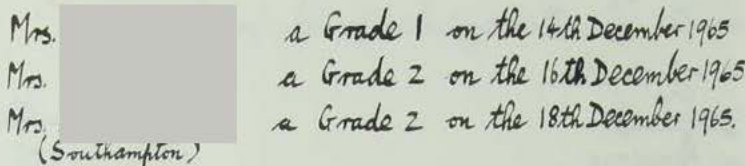 Mrs. a Grade 1 on the 14th December 1965
Mrs. a Grade 2 on the 16th December 1965
Mrs. a Grade 2 on the 18th December 1965.
(Southampton)